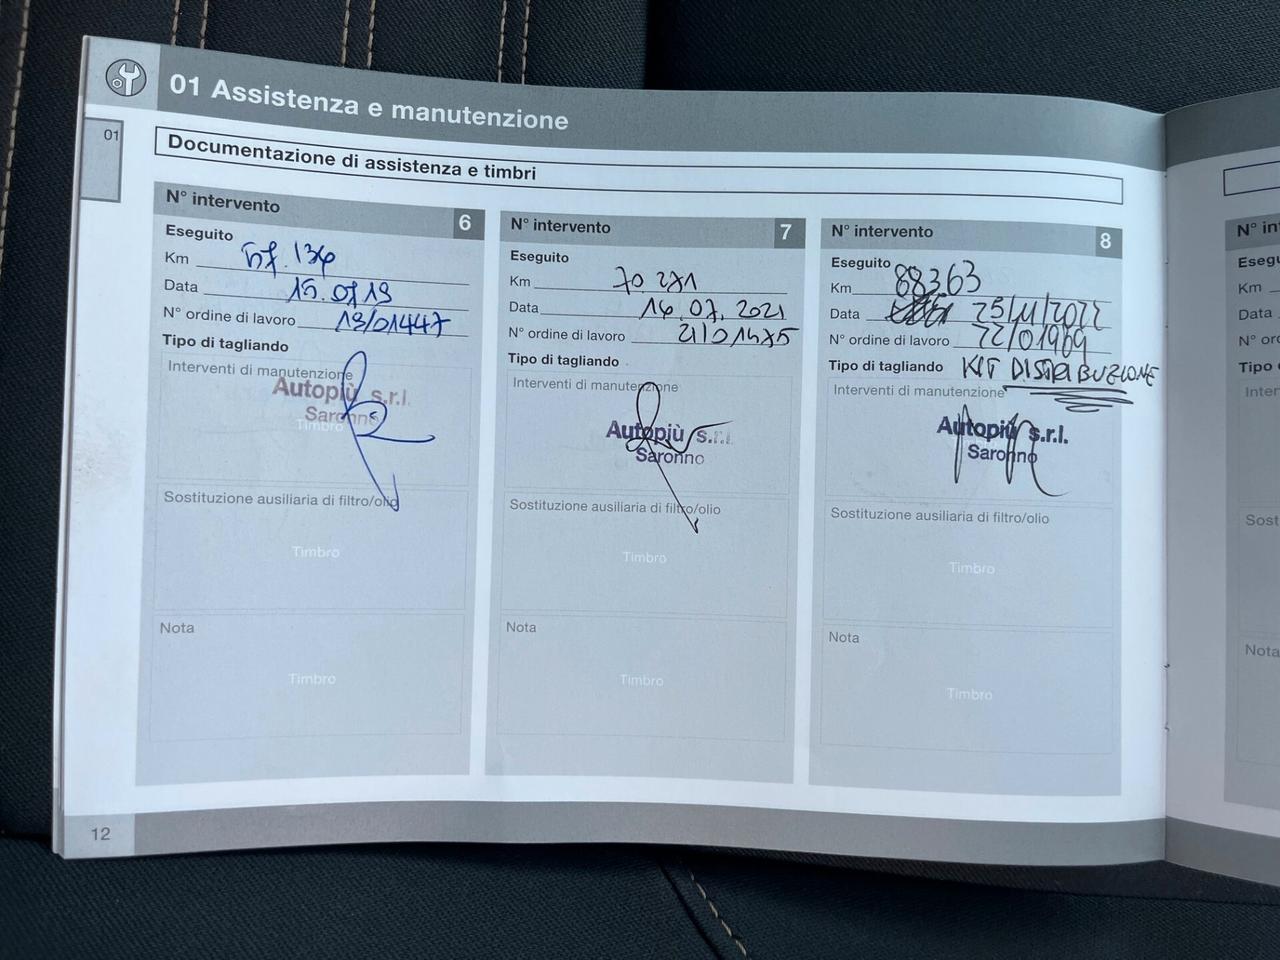 01 Assistenza e manutenzione
01
Documentazione di assistenza e timbri
N° intervento 6
Eseguito
Km
Data 15.07.19
N° ordine di lavoro 19/01447
Tipo di tagliando
Interventi di manutenzione
Autopiù s.r.l.
Saronno
Timbro
Sostituzione ausiliaria di filtro/olio
Timbro
Nota
Timbro
N° intervento 7
Eseguito
Km 70.271
Data 14.07.2021
N° ordine di lavoro 21/01475
Tipo di tagliando
Interventi di manutenzione
Autopiù s.r.l.
Saronno
Sostituzione ausiliaria di filtro/olio
Timbro
Nota
Timbro
N° intervento 8
Eseguito
Km 88363
Data 25/11/2022
N° ordine di lavoro 22/01969
Tipo di tagliando KIT DISTRIBUZIONE
Interventi di manutenzione
Autopiù s.r.l.
Saronno
Sostituzione ausiliaria di filtro/olio
Timbro
Nota
Timbro
N° in
Esegu
Km
Data
N° or
Tipo
Inter
Sost
Nota
12